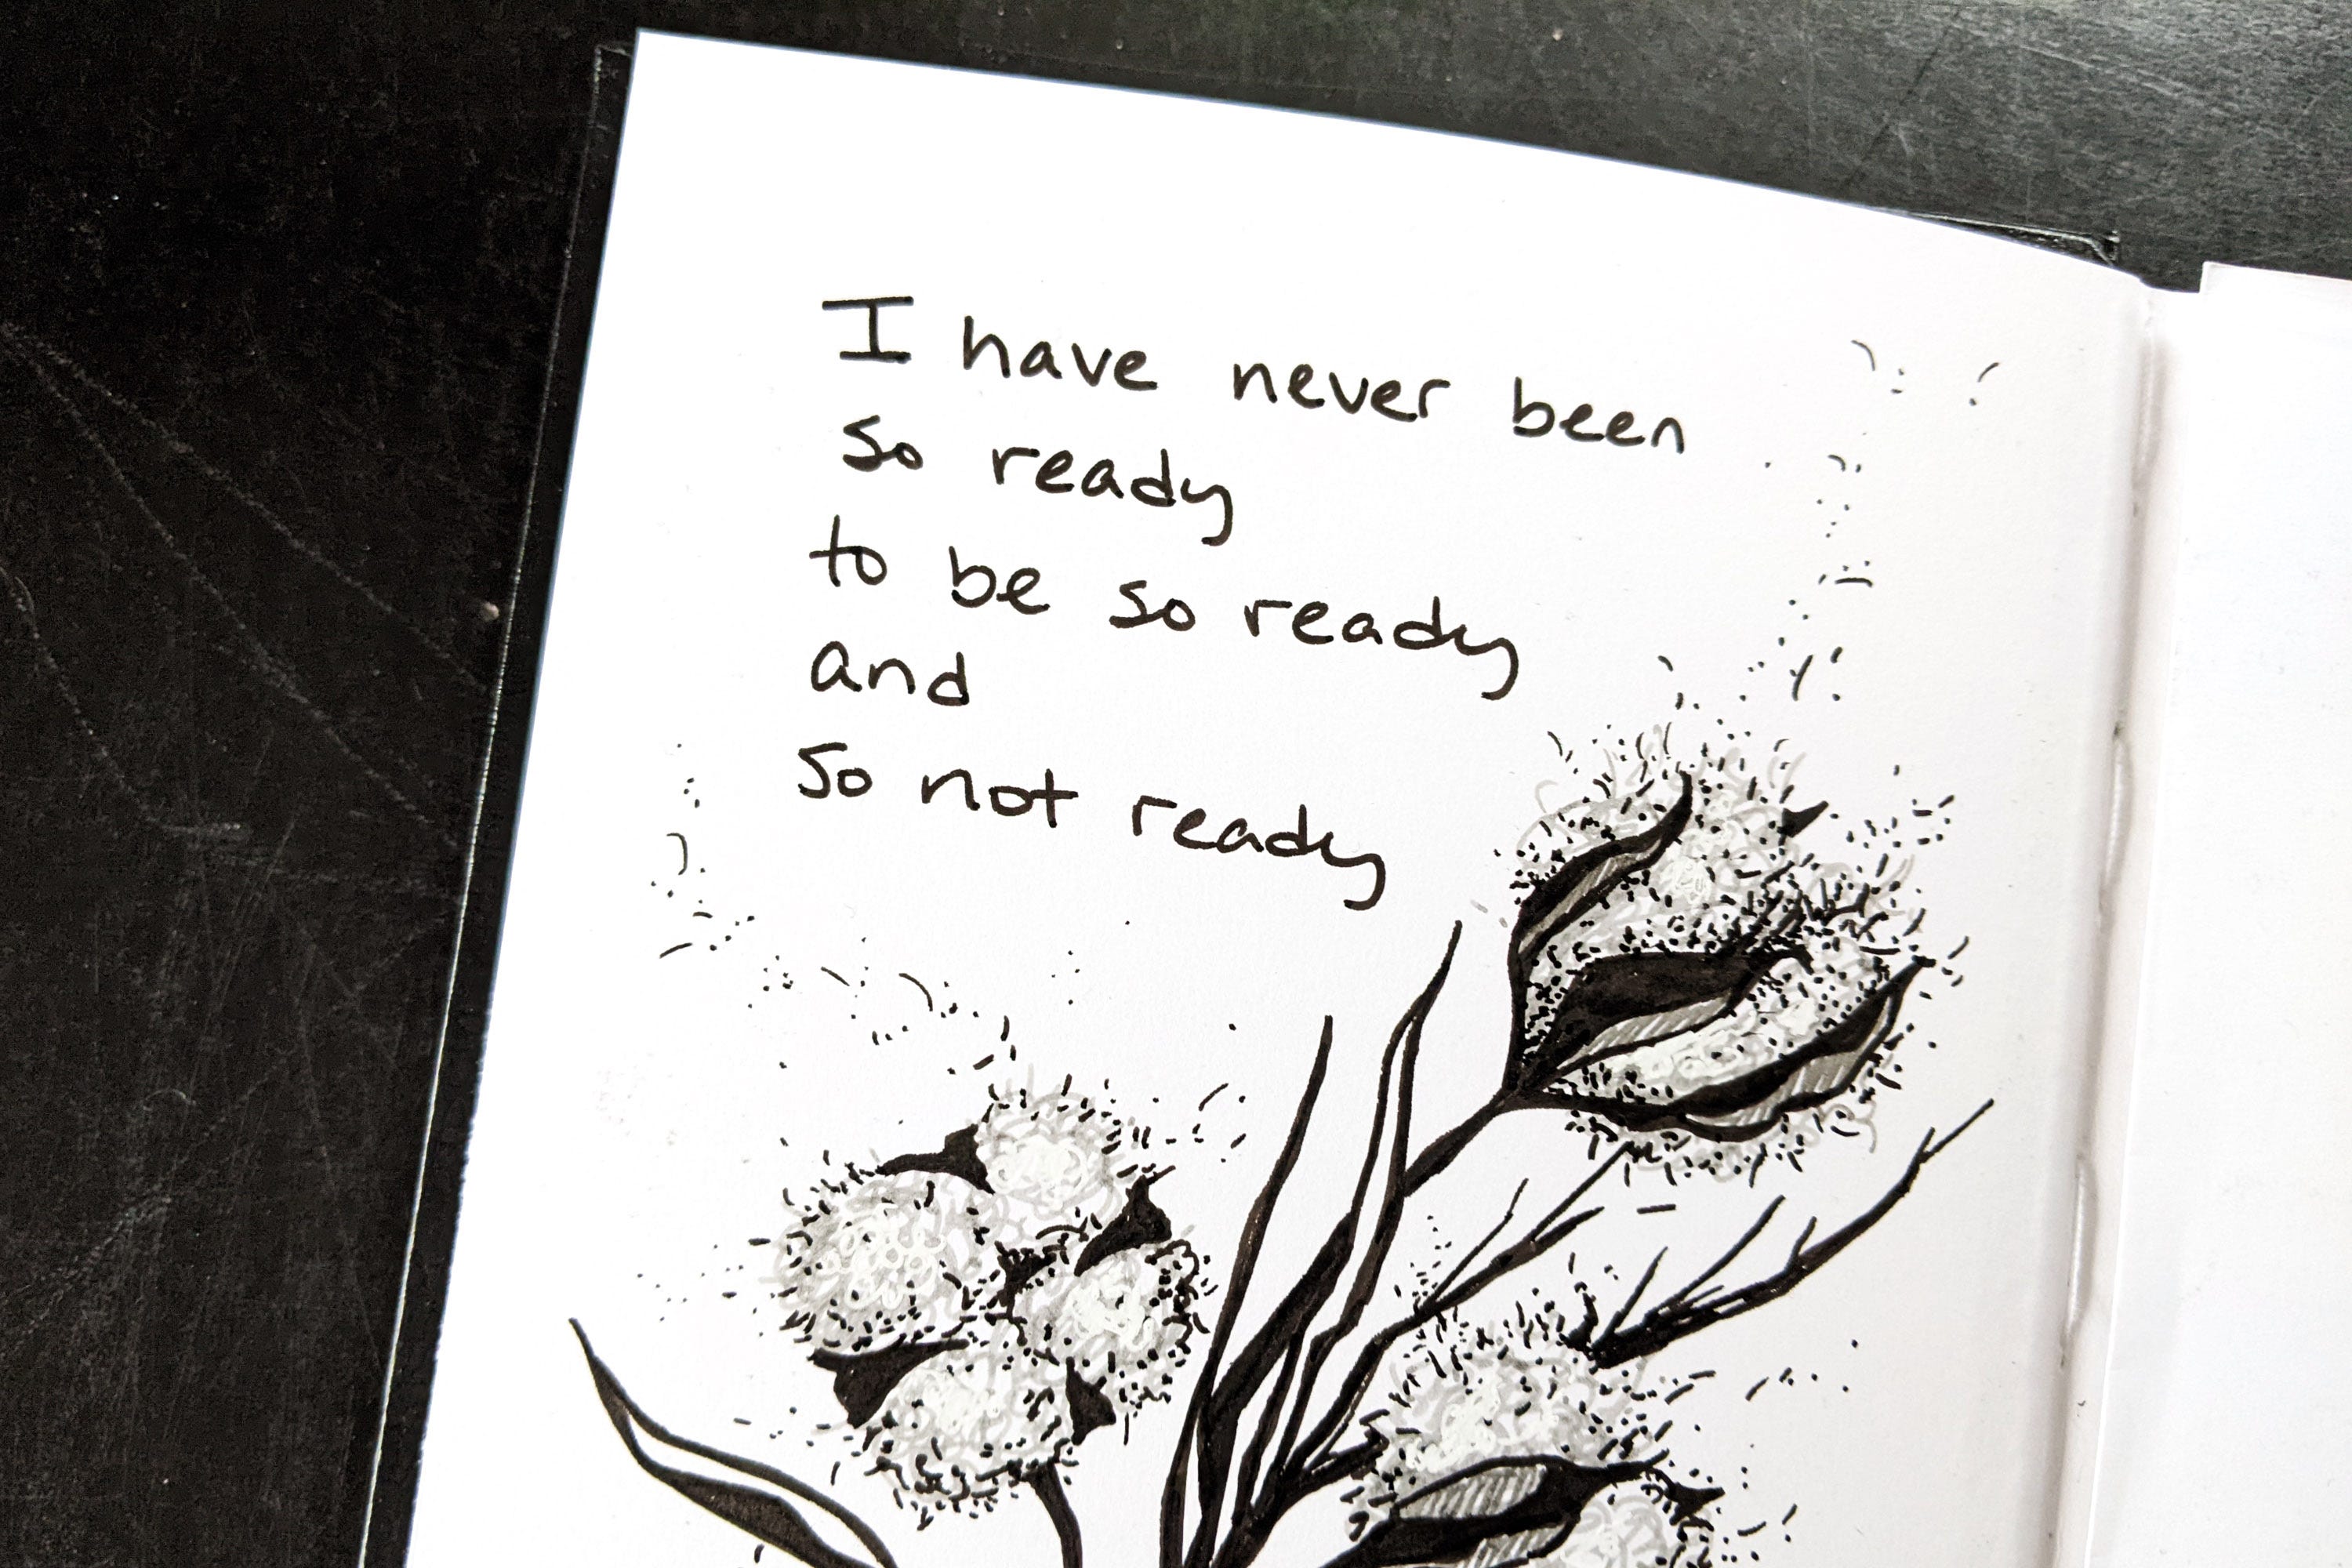 I have never been
so ready
to be so ready
and
so not ready